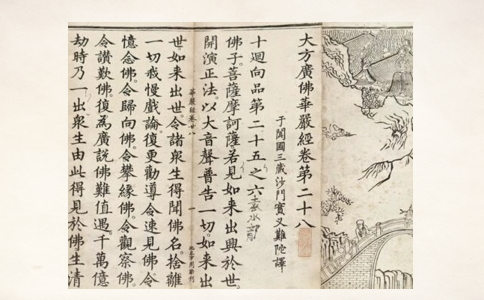 大方廣佛華嚴經卷第二十八
于闐國三藏沙門實叉難陀譯
十迴向品第二十五之六
佛子。菩薩摩訶薩若見如來出興於世。
開演正法。以大音聲普告一切。如來出
華嚴經卷廿八
世如來出世。令諸衆生得聞佛名。捨離
一切我慢戲論。復更勸導。令速見佛。令
憶念佛。令歸向佛。令攀緣佛。令觀察佛。
令讚歎佛。復為廣說佛難值遇。千萬億
劫時乃一出。衆生由此得見於佛。生清